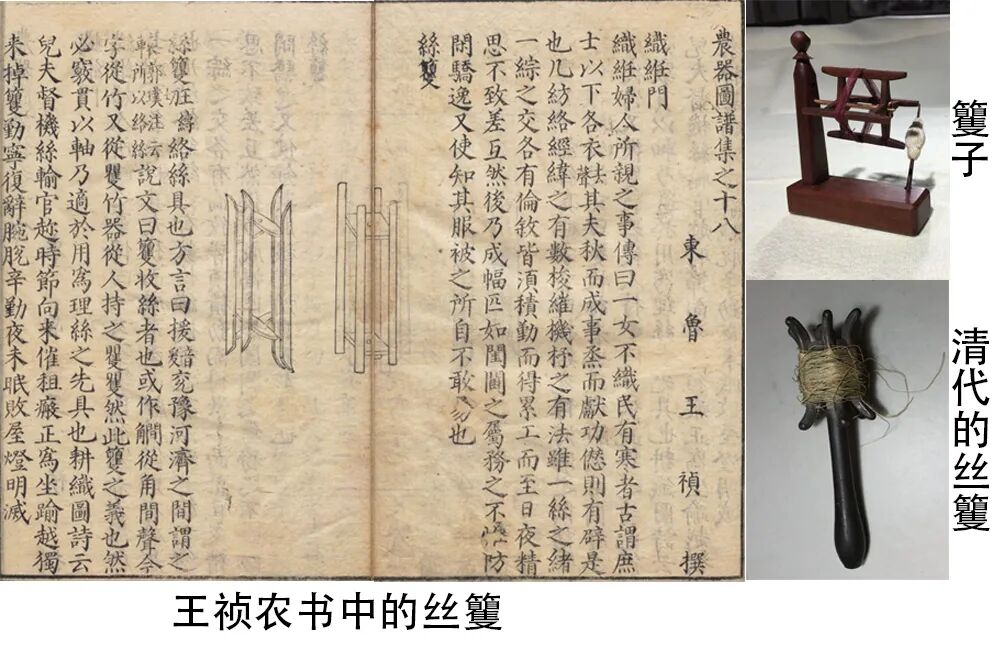 農器圖譜集之十八
東魯王禎撰
織絍門
織絍婦人所親之事傳曰一女不織民有寒者古謂庶
士以下各衣其夫秋而成事烝而獻功愆則有辟是
也凡紡絡經緯之有數梭維機杼之有法雖一絲之緒
一綜之交各有倫敘皆須積勤而得累工而至日夜精
思不致差互然後乃成幅匹如閨閫之屬務之不 防
閑驕逸又使知其服被之所自不敢 也
絲籰
絲籰 絡絲具也方言曰援 兗豫河濟之間謂之
郭璞注云所以絡絲 說文曰籰收絲者也或作觸從角間聲今
字從竹又從矍竹器從人持之矍矍然此籰之義也然
必竅貫以軸乃適於用為理絲之先具也耕織圖詩云
兒夫督機絲輸官趂時節向来催租瘢正為坐踰越獨
来掉籰勤寧復辭腕脫辛勤夜未眠敗屋燈明滅
籰子
清代的丝籰
王祯农书中的丝籰